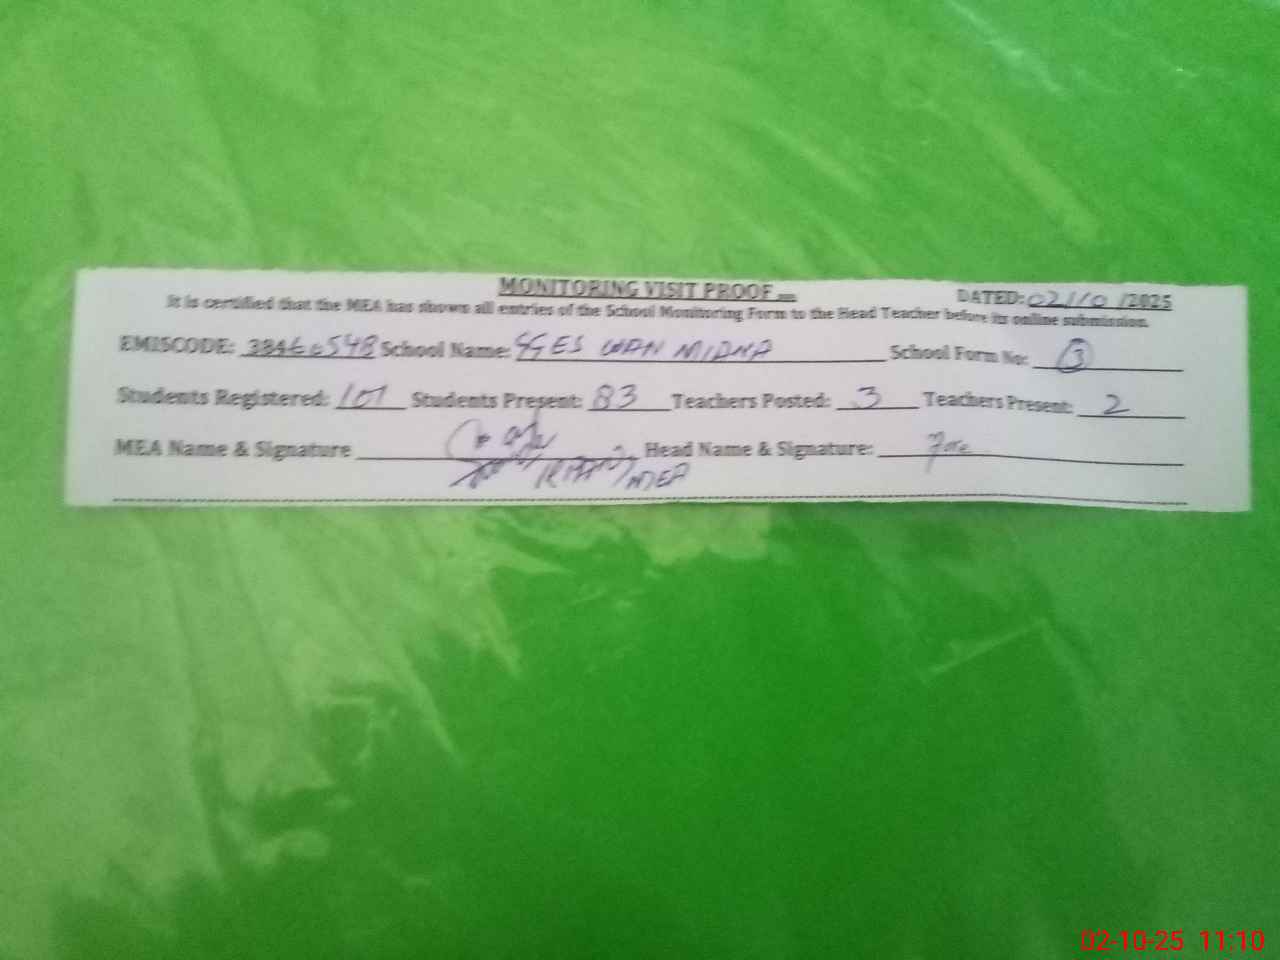 MONITORING VISIT PROOF
DATED: 02/10/2025
It is certified that the MEA has shown all entries of the School Monitoring Form to the Head Teacher before its online submission.
EMISCODE: 38460548 School Name: GGES WAN MIANA School Form No: 3
Students Registered: 107 Students Present: 83 Teachers Posted: 3 Teachers Present: 2
MEA Name & Signature Head Name & Signature:
MEA
02-10-25 11:10